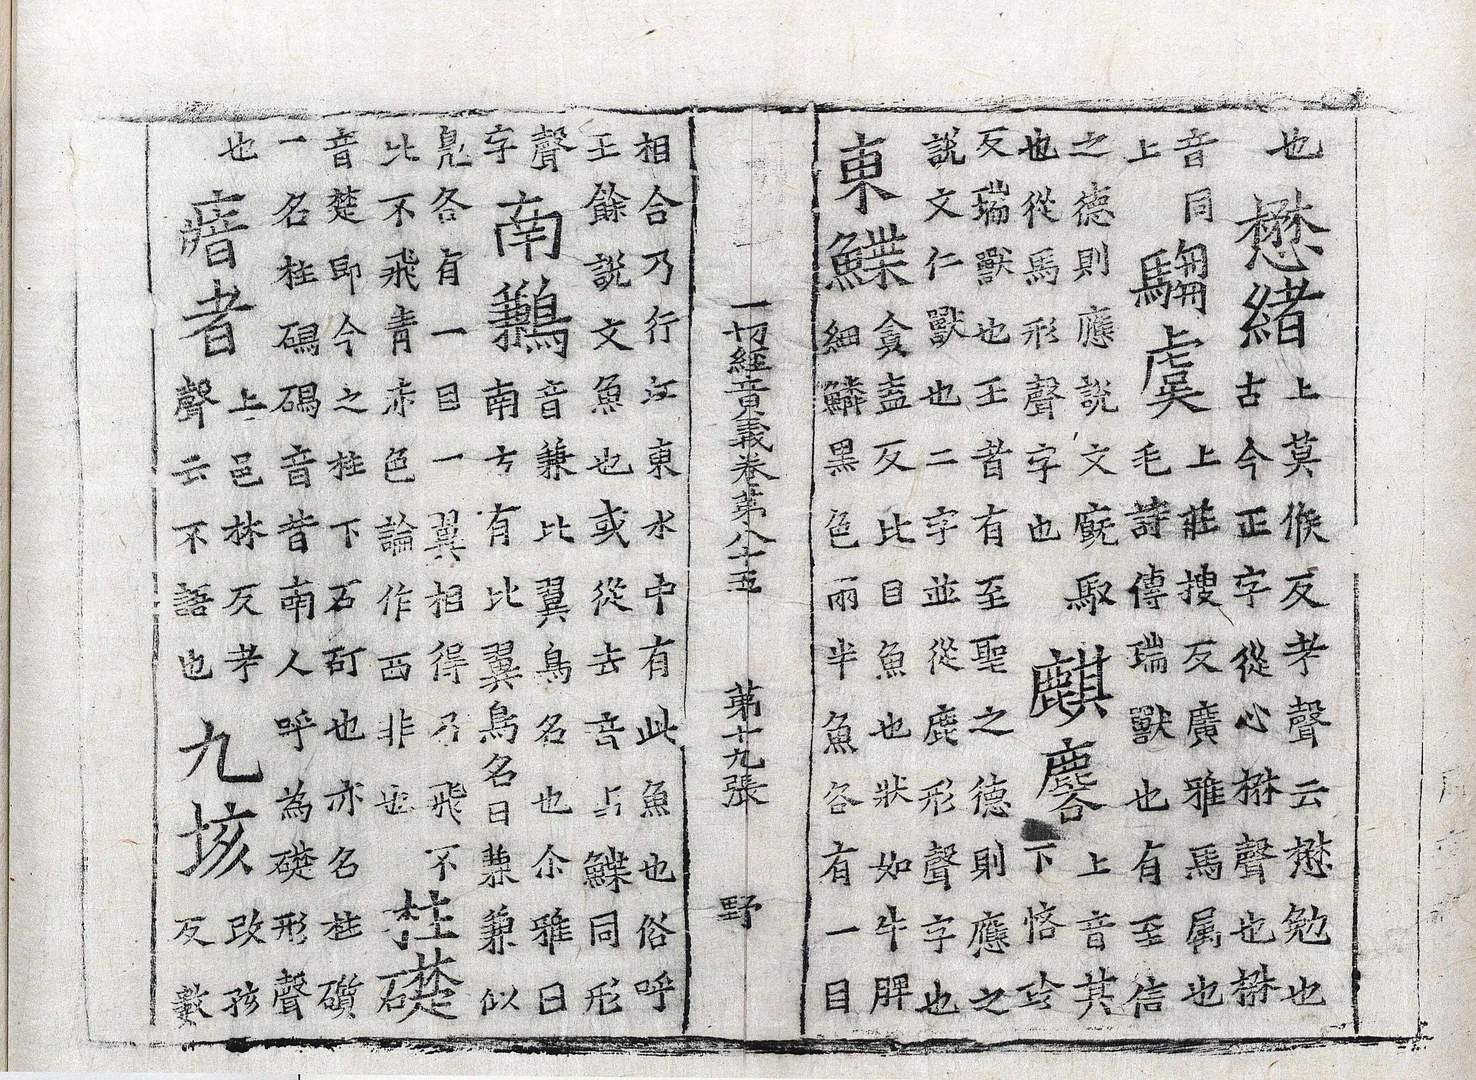 也懋緒上莫候反考聲云懋勉也
古今正字從心楙聲也楙
音同
上騶虞上莊搜反廣雅馬属也
毛詩傳瑞獸也有至信
之德則應說文廐馭
也從馬形聲字也麒麐上音其
下悋㐱
反瑞獸也王者有至聖之德則應之
說文仁獸也二字並從鹿形聲字也
東鰈貪盍反比目魚也狀如牛脾
細鱗黑色兩半魚各有一目
一切經音義卷第八十五 第十九張 野
相合乃行江東水中有此魚也俗呼
王餘說文魚也或從去音与鰈同形
聲
字南鶼音兼比翼鳥名也尒雅曰
南方有比翼鳥名曰鶼鶼似
鳧各有一目一翼相得乃飛不
比不飛青赤色論作西非也柱礎
音楚即今之柱下石矴也亦名柱礩
一名柱磶磶音昔南人呼為礎形聲
也瘖者上邑林反考
聲云不語也九垓改孩
反數